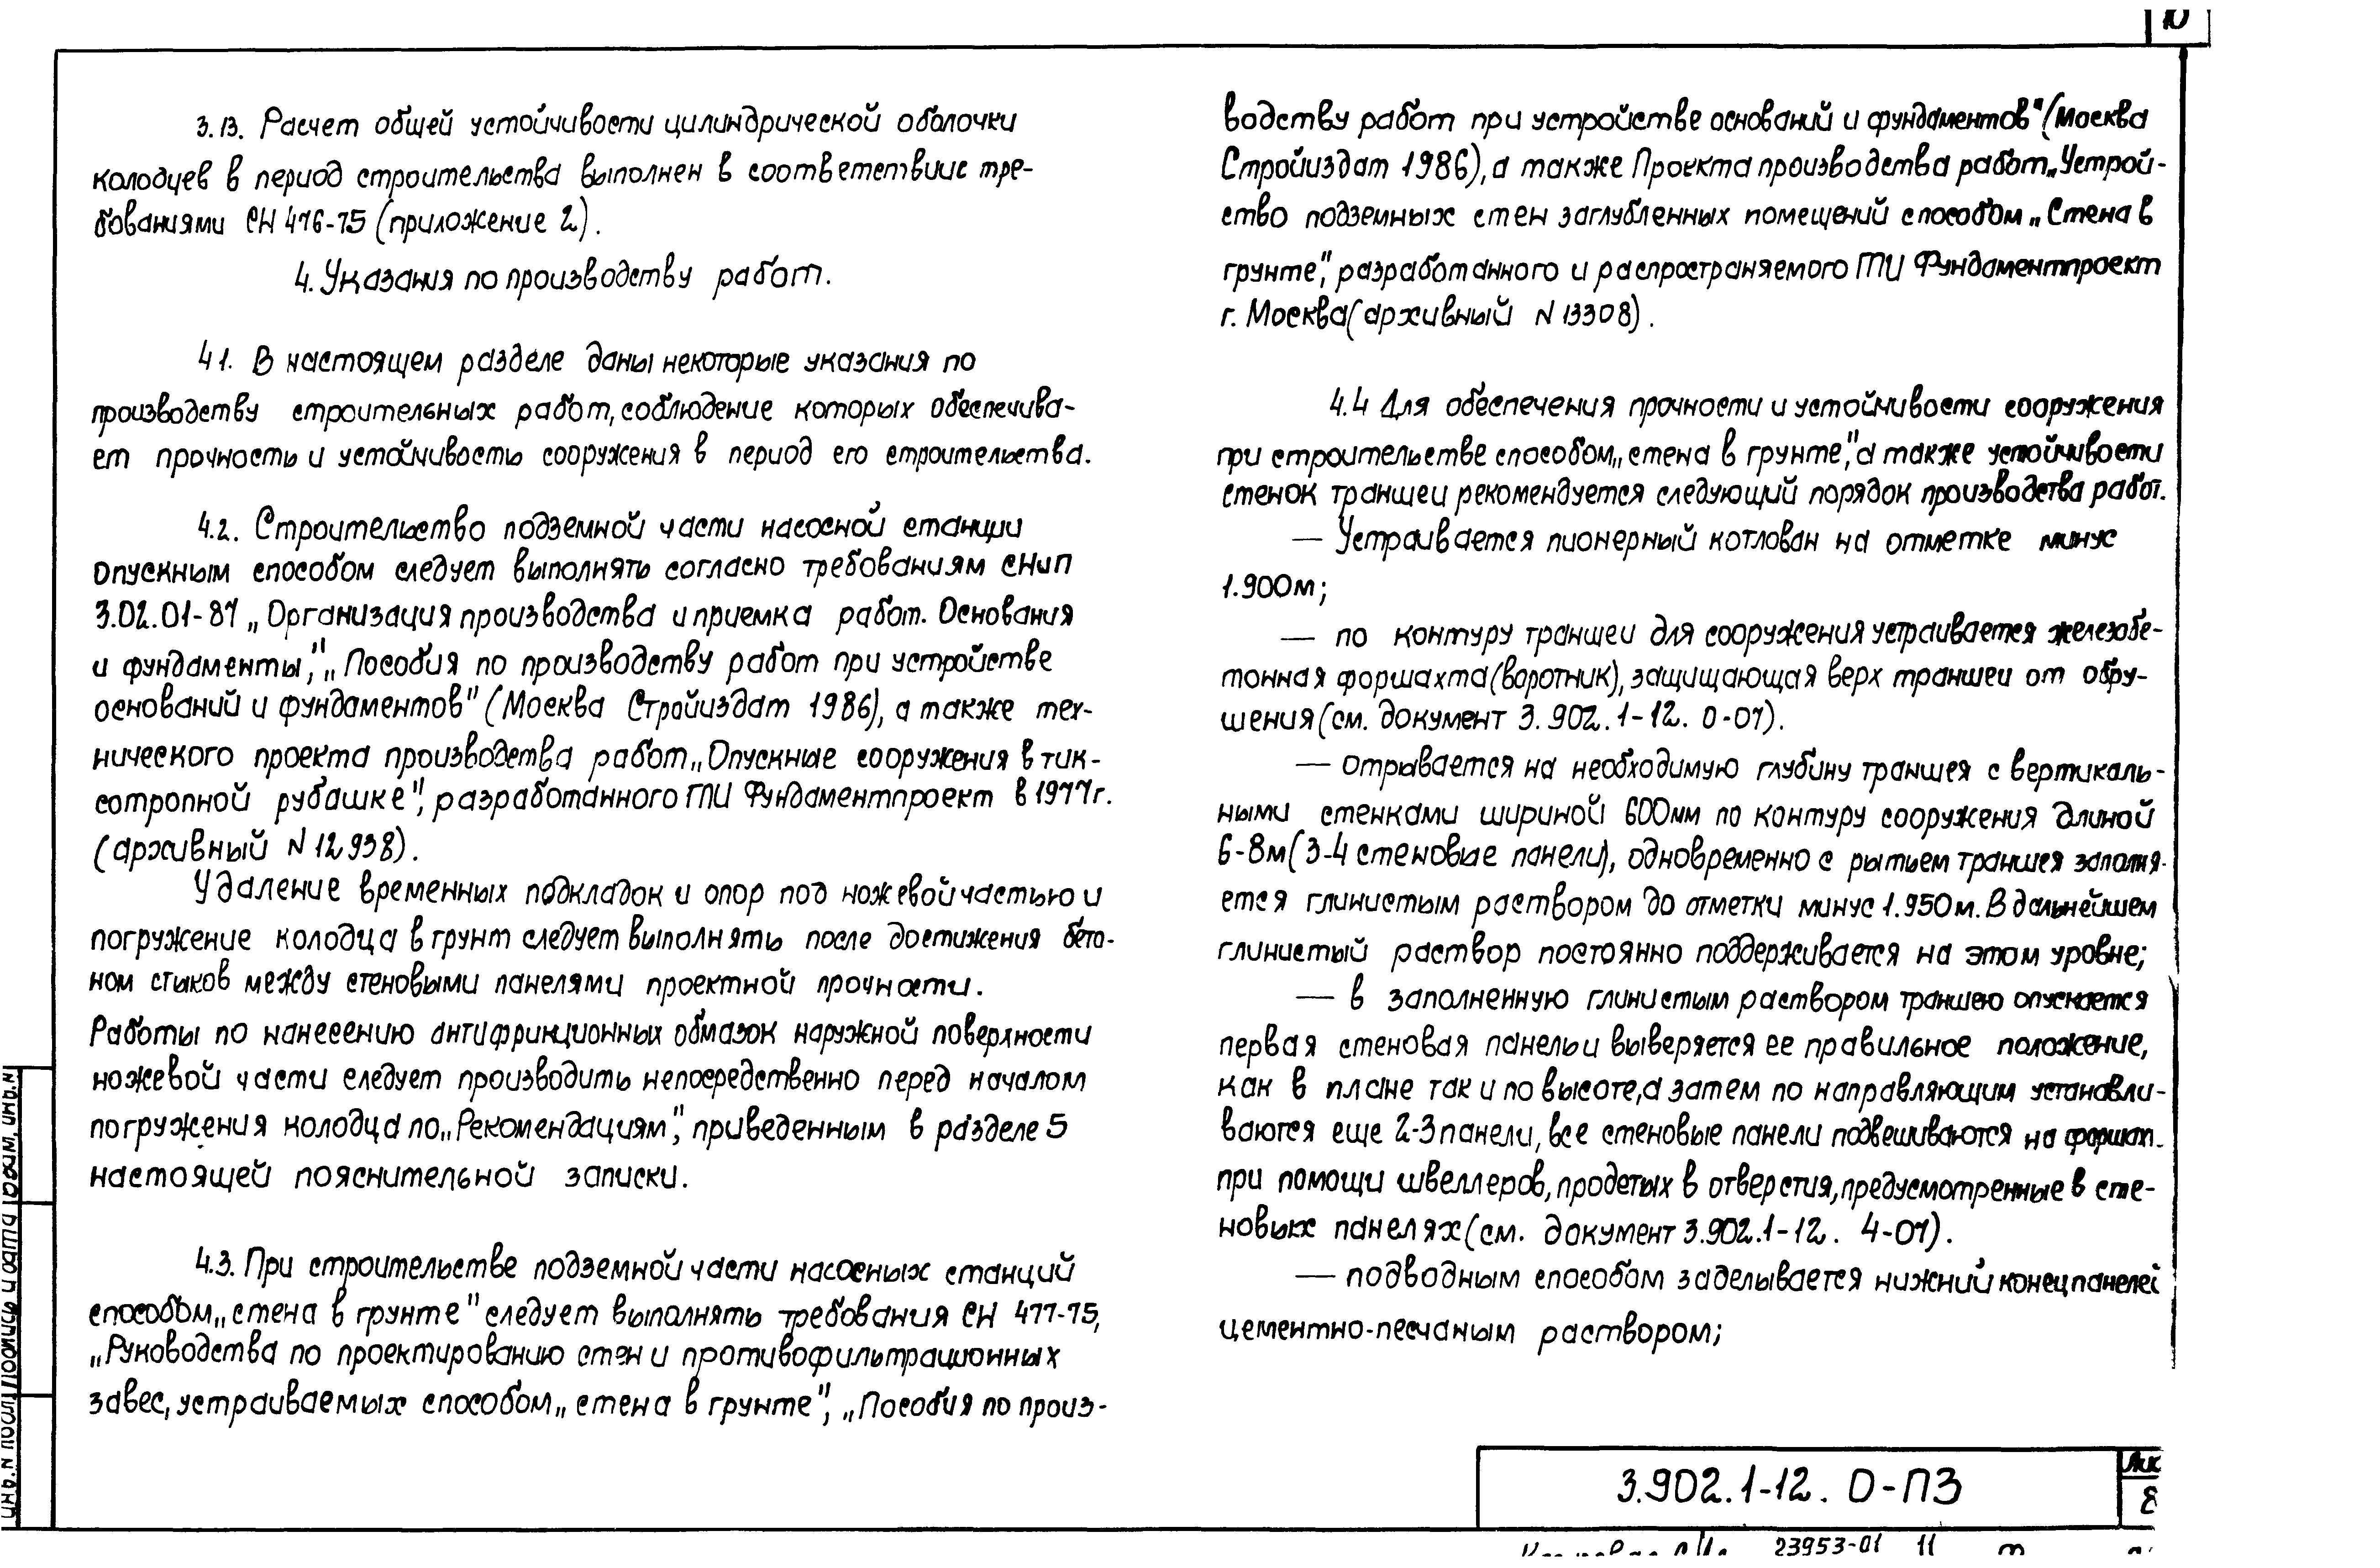 10
3.13. Расчет общей устойчивости цилиндрической оболочки
колодцев в период строительства выполнен в соответствиис тре-
бованиями СН 476-75 (приложение 2).
4. Указания по производству работ.
4 1. В настоящем разделе даны некоторые указания по
производству строительных работ, соблюдение которых обеспечива-
ет прочность и устойчивость сооружения в период его строительства.
4.2. Строительство подземной части насосной станции
опускным способом следует выполнять согласно требованиям СНиП
3.02.01-87 „Организация производства и приемка работ. Основания
и фундаменты", „Пособия по производству работ при устройстве
оснований и фундаментов" (Москва Стройиздат 1986), а также тех-
нического проекта производства работ „Опускные сооружения в тик-
сотропной рубашке", разработанного ГПИ Фундаментпроект в 1977г.
(архивный N 12938).
Удаление временных подкладок и опор под ножевой частью и
погружение колодца в грунт следует выполнять после достижения бето-
ном стыков между стеновыми панелями проектной прочности.
Работы по нанесению антифрикционных обмазок наружной поверхности
ножевой части следует производить непосредственно перед началом
погружения колодца по „Рекомендациям", приведенным в разделе 5
настоящей пояснительной записки.
4.3. При строительстве подземной части насосных станций
способом „стена в грунте" следует выполнять требования СН 477-75,
„Руководства по проектированию стен и противофильтрационных
завес, устраиваемых способом „стена в грунте", „Пособия по произ-
водству работ при устройстве оснований и фундаментов" (Москва
Стройиздат 1986), а также Проекта производства работ „Устрой-
ство подземных стен заглубленных помещений способом „Стена в
грунте", разработанного и распространяемого ГПИ Фундаментпроект
г. Москва (архивный N 13308).
4.4 Для обеспечения прочности и устойчивости сооружения
при строительстве способом „стена в грунте", а также устойчивости
стенок траншеи рекомендуется следующий порядок производства работ.
— Устраивается пионерный котлован на отметке минус
1.900м;
— по контуру траншеи для сооружения устраивается железобе-
тонная форшахта (воротник), защищающая верх траншеи от обру-
шения (см. документ 3.902.1-12. 0-01).
— отрывается на необходимую глубину траншея с вертикаль-
ными стенками шириной 600мм по контуру сооружения длиной
6-8м (3-4 стеновые панели), одновременно с рытьем траншея заполня-
ется глинистым раствором до отметки минус 1.950м. В дальнейшем
глинистый раствор постоянно поддерживается на этом уровне;
— в заполненную глинистым раствором траншею опускается
первая стеновая панель и выверяется ее правильное положение,
как в плане так и по высоте, а затем по направляющим устанавли-
ваются еще 2-3 панели, все стеновые панели подвешиваются на
при помощи швеллеров, продетых в отверстия, предусмотренные в сте-
новых панелях (см. документ 3.902.1-12. 4-01).
— подводным способом заделывается нижний конец панелей
цементно-песчаным раствором;
3.902.1-12. 0-ПЗ
8
23953-01 11
Подпись и дата